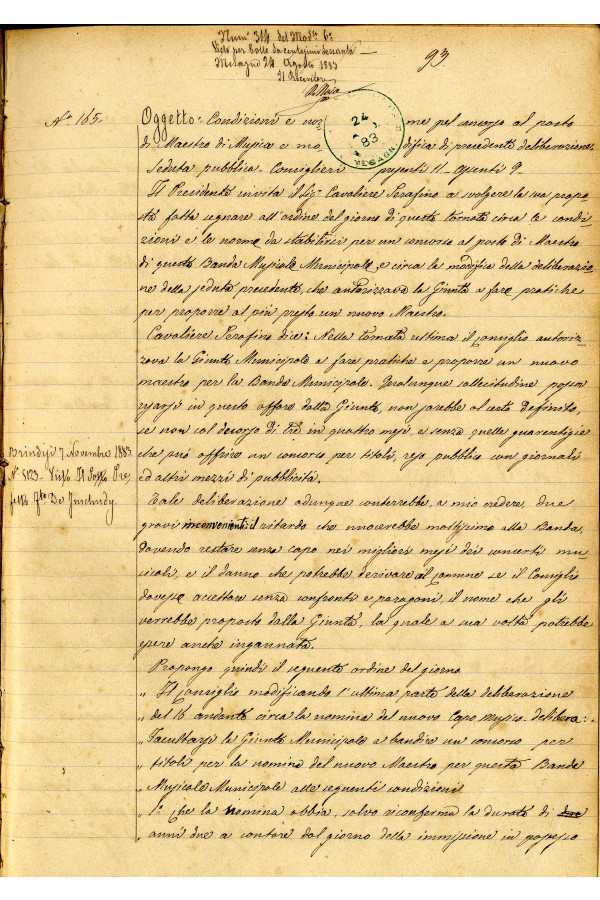 Num° 314 del Mod° 6°
Visto per bollo da centesimi sessanta
Mesagne 24 Agosto 1883
Il Ricevitore
93.
24
83
N° 165.
Oggetto: Condizioni e norme pel concorso al posto
di Maestro di Musica e modifica di precedente deliberazione.
Seduta pubblica - Consiglieri presenti 11 - assenti 9 -
Il Presidente invita il Sig. Cavaliere Serafino a svolgere la sua propo
sta fatta segnare all'ordine del giorno di questa tornata circa le condi
zioni e le norme da stabilirsi per un concorso al posto di Maestro
di questa Banda Musicale Municipale, e circa la modifica della deliberazio
ne della seduta precedente, che autorizzava la Giunta a fare pratiche
per proporre al più presto un nuovo Maestro.
Cavaliere Serafino dice: Nella tornata ultima il Consiglio autoriz
zava la Giunta Municipale a fare pratiche e proporre un nuovo
maestro per la Banda Municipale. Qualunque sollecitudine possa
usarsi in questo affare dalla Giunta, non sarebbe al certo definito,
se non col decorso di tre in quattro mesi e senza quelle guarentigie
che può offrire un concorso per titoli, reso pubblico con giornali
ed altri mezzi di pubblicità.
Brindisi 7 Novembre 1883
N° 5123 - Visto Il Sotto Pre
fetto
Tale deliberazione adunque conterrebbe, a mio credere, due
gravi inconvenienti: il ritardo che nuocerebbe moltissimo alla Banda,
dovendo restare senza capo nei migliori mesi dei concerti mu
sicali, e il danno che potrebbe derivare al Comune se il Consiglio
dovesse accettare senza confronti e paragoni, il nome che gli
verrebbe proposto dalla Giunta, la quale a sua volta potrebbe
essere anche ingannata.
Propongo quindi il seguente ordine del giorno
„ Il Consiglio modificando l'ultima parte della deliberazione
„ del 16 andante circa la nomina del nuovo Capo musica delibera:
„ Facultarsi la Giunta Municipale a bandire un concorso per
„ titoli per la nomina del nuovo Maestro per questa Banda
„ Musicale Municipale alle seguenti condizioni
„ 1° Che la nomina abbia, salvo riconferma la durata di due
„ anni due a contare dal giorno della immissione in possesso